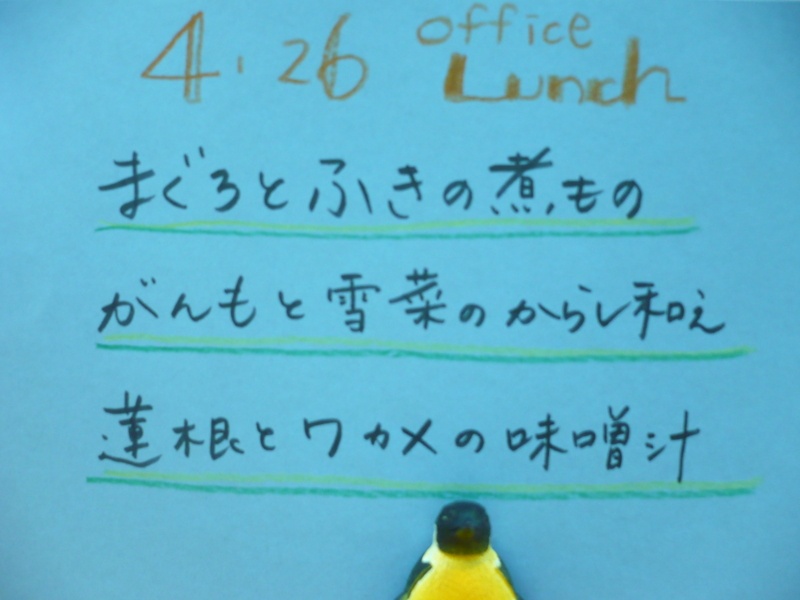 4.26 office Lunch
まぐろとふきの煮もの
がんもと雪菜のからし和え
蓮根とワカメの味噌汁